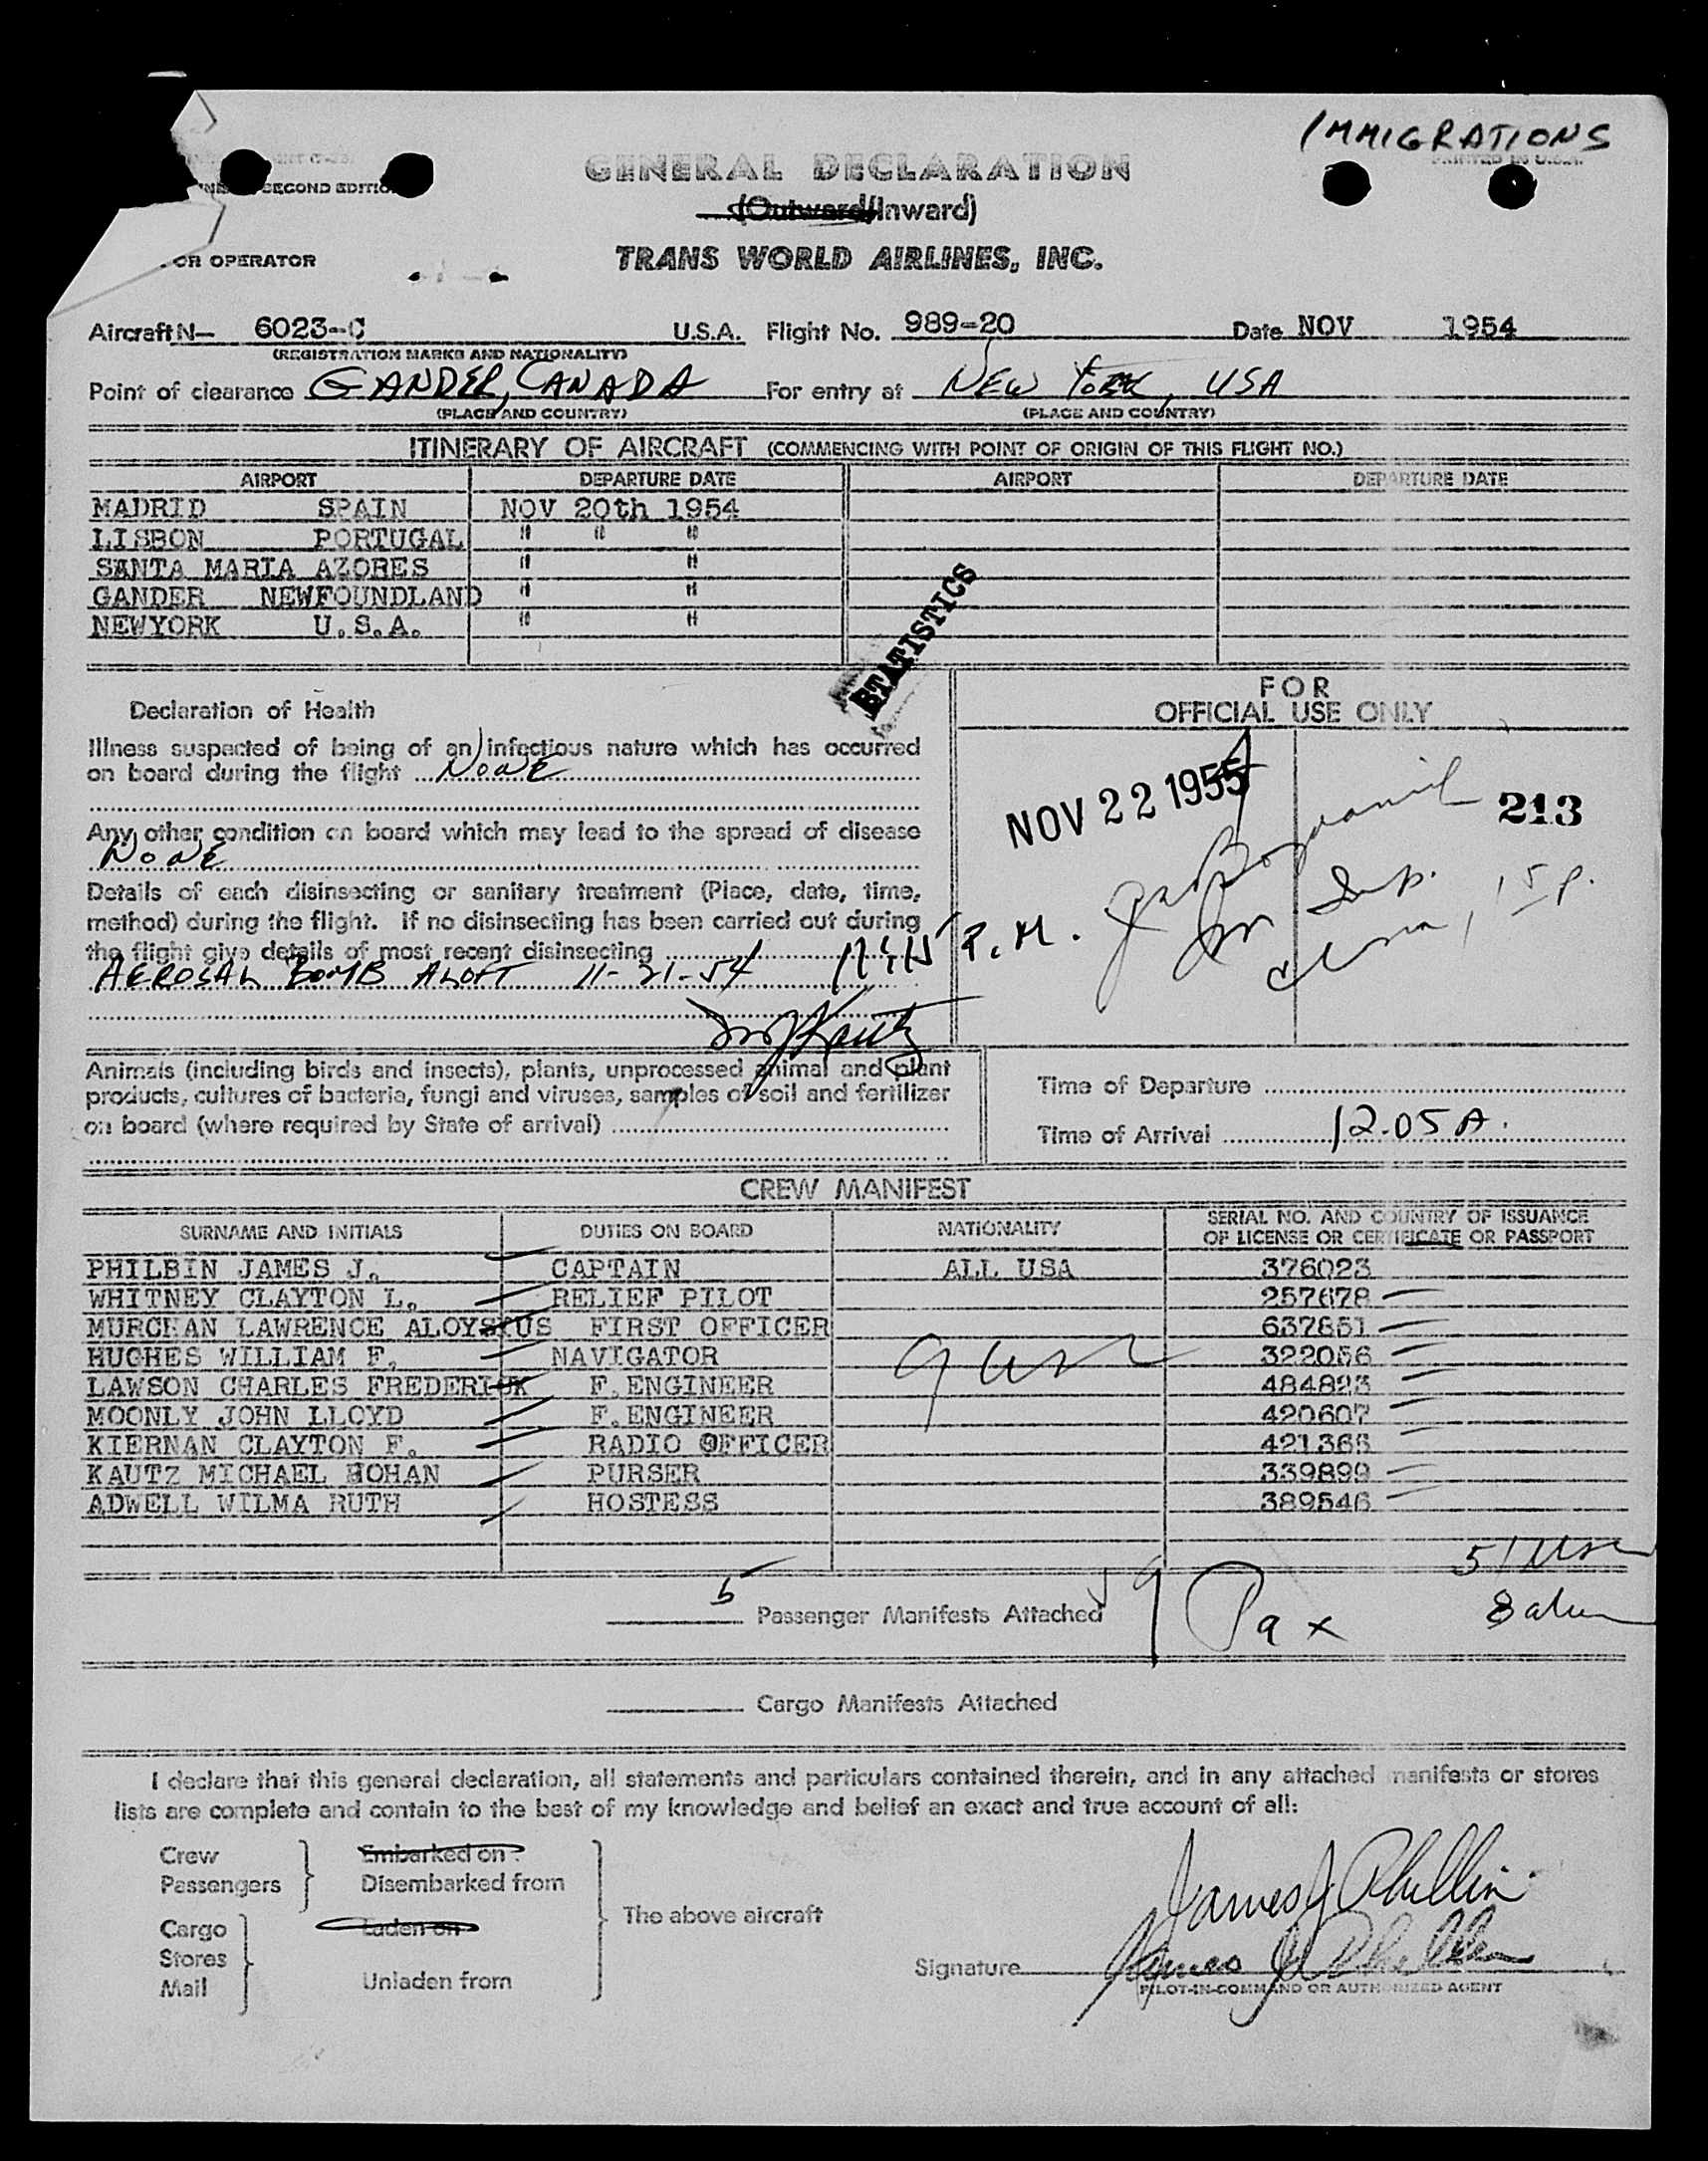 IMMIGRATIONS
PRINTED IN U.S.A.
SECOND EDITIO
GENERAL DECLARATION
(Outward/Inward)
OR OPERATOR
TRANS WORLD AIRLINES, INC.
Aircraft N— 6023-C U.S.A. Flight No. 989-20 Date NOV 1954
(REGISTRATION MARKS AND NATIONALITY)
Point of clearance GANDER, CANADA For entry at NEW YORK, USA
(PLACE AND COUNTRY) (PLACE AND COUNTRY)
ITINERARY OF AIRCRAFT (COMMENCING WITH POINT OF ORIGIN OF THIS FLIGHT NO.)
AIRPORT DEPARTURE DATE AIRPORT DEPARTURE DATE
MADRID SPAIN NOV 20th 1954
LISBON PORTUGAL " " "
SANTA MARIA AZORES " "
GANDER NEWFOUNDLAND " "
NEWYORK U.S.A. " "
STATISTICS
Declaration of Health
Illness suspected of being of an infectious nature which has occurred
on board during the flight NONE
Any other condition on board which may lead to the spread of disease
NONE
Details of each disinsecting or sanitary treatment (Place, date, time,
method) during the flight. If no disinsecting has been carried out during
the flight give details of most recent disinsecting
AEROSAL BOMB ALOFT 11-21-54 P.M.
Kautz
FOR
OFFICIAL USE ONLY
NOV 22 1955
213
Insp.
Animals (including birds and insects), plants, unprocessed animal and plant
products, cultures of bacteria, fungi and viruses, samples of soil and fertilizer
on board (where required by State of arrival)
Time of Departure
Time of Arrival 12.05 A.
CREW MANIFEST
SURNAME AND INITIALS DUTIES ON BOARD NATIONALITY SERIAL NO. AND COUNTRY OF ISSUANCE
OF LICENSE OR CERTIFICATE OR PASSPORT
PHILBIN JAMES J. CAPTAIN ALL USA 376023
WHITNEY CLAYTON L. RELIEF PILOT 257678
MURCHAN LAWRENCE ALOYSIUS FIRST OFFICER 637851
HUGHES WILLIAM F. NAVIGATOR 322056
LAWSON CHARLES FREDERICK F.ENGINEER 484823
MOONLY JOHN LLOYD F.ENGINEER 420607
KIERNAN CLAYTON F. RADIO OFFICER 421365
KAUTZ MICHAEL BOHAN PURSER 339899
ADWELL WILMA RUTH HOSTESS 389546
9 USA
51 USA
5 Passenger Manifests Attached 59 Pax 8 alien
Cargo Manifests Attached
I declare that this general declaration, all statements and particulars contained therein, and in any attached manifests or stores
lists are complete and contain to the best of my knowledge and belief an exact and true account of all:
Crew Embarked on
Passengers Disembarked from
The above aircraft
Cargo Laden on
Stores
Mail Unladen from
James J Philbin
Signature James J Philbin
PILOT-IN-COMMAND OR AUTHORIZED AGENT